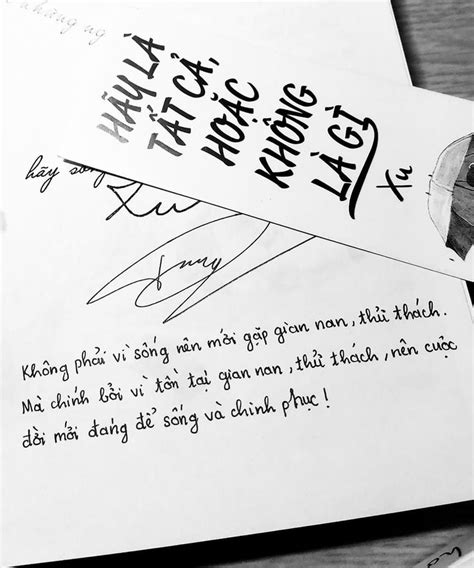 HÃY LÀ
TẤT CẢ,
HOẶC
KHÔNG
LÀ GÌ
Xu
hãy sống
Xu
Không phải vì sống nên mới gặp gian nan, thử thách.
Mà chính bởi vì tồn tại gian nan, thử thách, nên cuộc
đời mới đáng để sống và chinh phục!